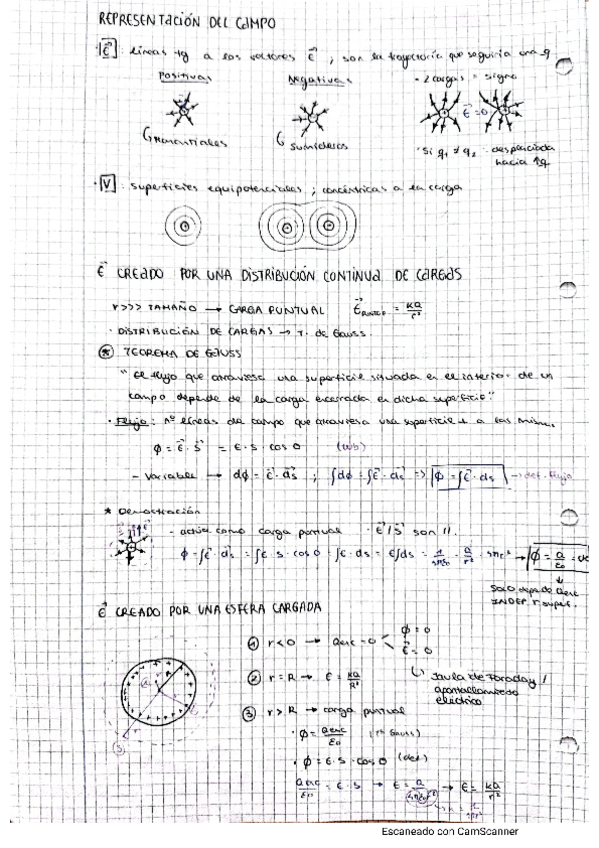 REPRESENTACIÓN DEL CAMPO
· E⃗ : líneas tg a los vectores E⃗ ; son la trayectoria que seguiría una q
Positivas Negativas - 2 cargas = signo
E⃗=0
Manantiales Sumideros · Si q₁ ≠ q₂ desplazada
hacia ↑q
· V : superficies equipotenciales ; concéntricas a la carga
E⃗ CREADO POR UNA DISTRIBUCIÓN CONTINUA DE CARGAS
r>>> TAMAÑO → CARGA PUNTUAL E⃗ = KQ/r²
· DISTRIBUCIÓN DE CARGAS → T. de Gauss.
* TEOREMA DE GAUSS
"El flujo que atraviesa una superficie situada en el interior de un
campo depende de la carga encerrada en dicha superficie"
· Flujo : nº líneas de campo que atraviesa una superficie ⊥ a las mismas.
ϕ = E⃗ · S⃗ = E · S · cos θ (wb)
- Variable → dϕ = E⃗ · ds⃗ ; ∫dϕ = ∫E⃗ · ds⃗ => ϕ = ∫E⃗ · ds → def. flujo
* Demostración
- actúa como carga puntual E⃗/S⃗ son //.
ϕ = ∫E⃗ · ds⃗ = ∫E · s · cos θ = ∫E · ds = E∫ds = · Q/r² · → ϕ = Q/ε₀
Solo depende Qenc
INDEP. super.
E⃗ CREADO POR UNA ESFERA CARGADA
① r<0 → Qenc=0 ϕ=0
E⃗=0
② r=R → E = KQ/R² Jaula de Faraday /
apantallamiento
eléctrico
③ r>R → carga puntual
· ϕ = Qenc/ε₀ (Tª Gauss)
· ϕ = E · S · cos θ (def)
Qenc/ε₀ = E · S → E = → E = KQ/r²
Escaneado con CamScanner